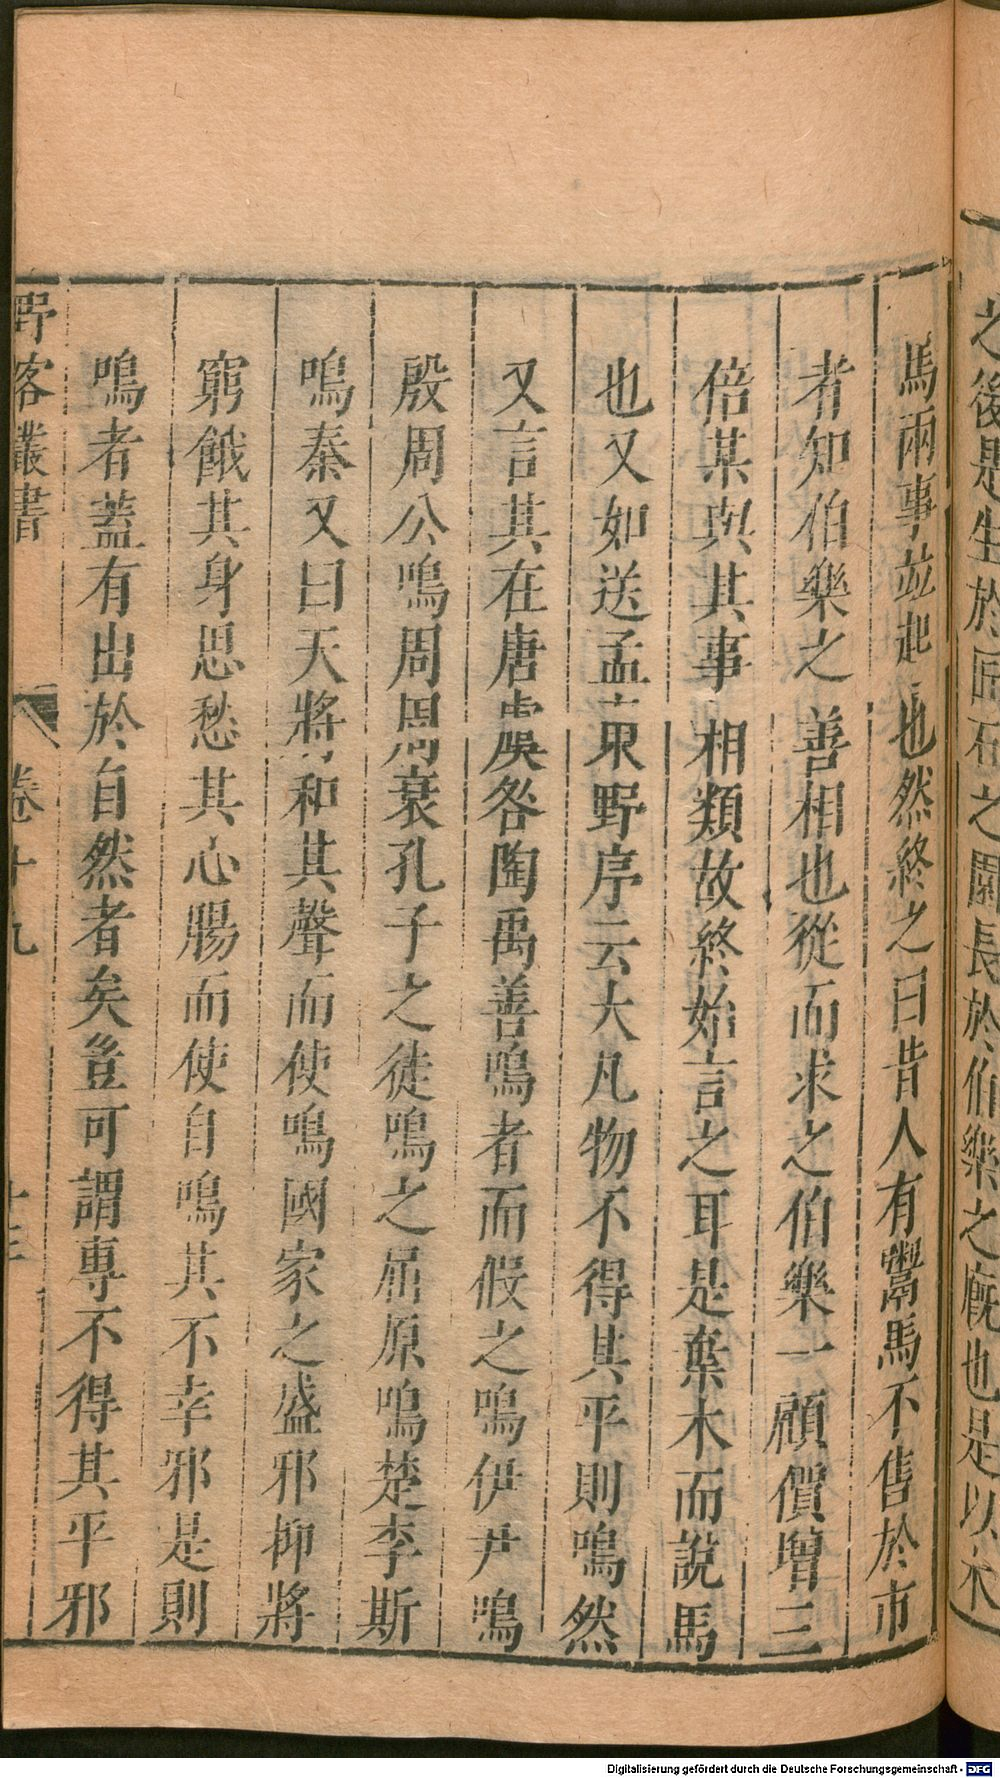 之後是生於匠石之園長於伯樂之廐也是以木
馬兩事並起也然終之曰昔人有鬻馬不售於市
者知伯樂之善相也從而求之伯樂一顧價增三
倍某與其事相類故終始言之耳是棄木而說馬
也又如送孟東野序云大凡物不得其平則鳴然
又言其在唐虞咎陶禹善鳴者而假之鳴伊尹鳴
殷周公鳴周周衰孔子之徒鳴之屈原鳴楚李斯
鳴秦又曰天將和其聲而使鳴國家之盛邪抑將
窮餓其身思愁其心腸而使自鳴其不幸邪是則
鳴者蓋有出於自然者矣豈可謂專不得其平邪
野客叢書 卷十九 十三
Digitalisierung gefördert durch die Deutsche Forschungsgemeinschaft - DFG